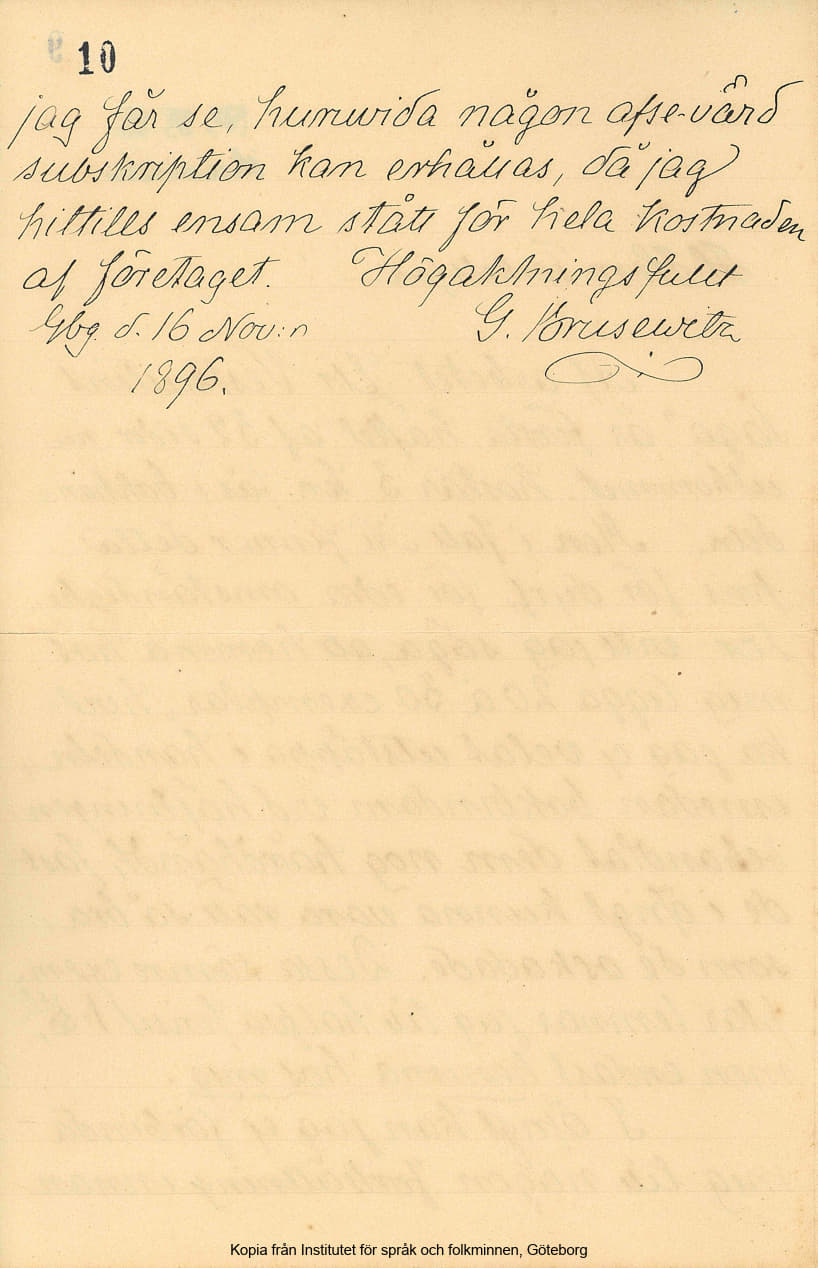 10
jag får se, huruvida någon afse-värd
subskription kan erhållas, då jag
hittills ensam stått för hela kostnaden
af företaget. Högaktningsfullt
Gbg. d. 16 Nov:r G. Brusewitz
1896.
Kopia från Institutet för språk och folkminnen, Göteborg